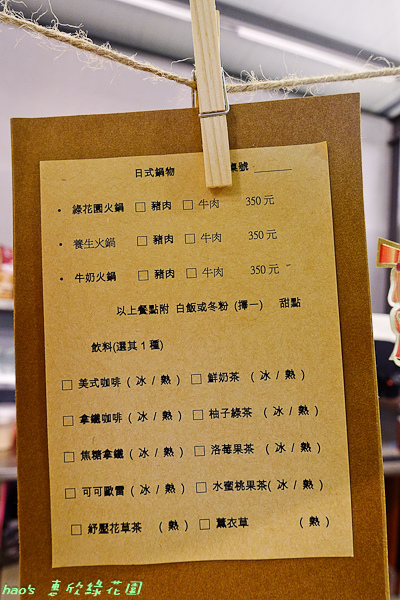 日式鍋物 桌號
• 綠花園火鍋 □ 豬肉 □ 牛肉 350 元
• 養生火鍋 □ 豬肉 □ 牛肉 350 元
• 牛奶火鍋 □ 豬肉 □ 牛肉 350 元
以上餐點附 白飯或冬粉 (擇一) 甜點
飲料(選其1種)
□ 美式咖啡 ( 冰 / 熱 ) □ 鮮奶茶 ( 冰 / 熱 )
□ 拿鐵咖啡 ( 冰 / 熱 ) □ 柚子綠茶 ( 冰 / 熱 )
□ 焦糖拿鐵 ( 冰 / 熱 ) □ 洛莓果茶 ( 冰 / 熱 )
□ 可可歐雷 ( 冰 / 熱 ) □ 水蜜桃果茶( 冰 / 熱 )
□ 紓壓花草茶 ( 熱 ) □ 薰衣草 ( 熱 )
hao's 惠欣綠花園